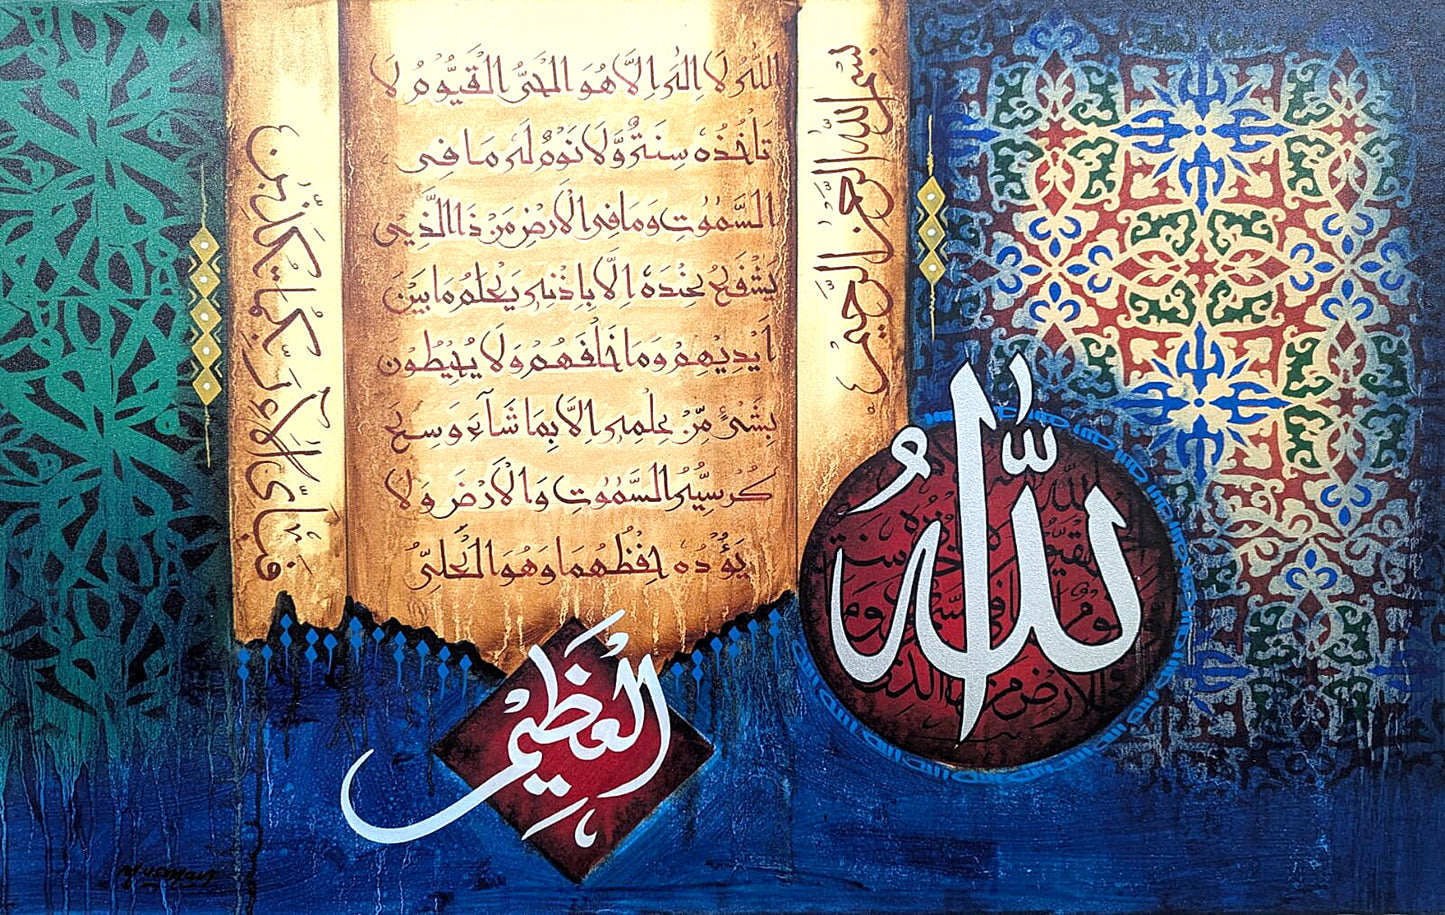 بسم الله الرحمن الرحيم
اَللّٰهُ لَا اِلٰهَ اِلَّا هُوَ الْحَىُّ الْقَيُّوْمُ لَا
تَاْخُذُهٗ سِنَةٌ وَّلَا نَوْمٌ لَهٗ مَا فِى
السَّمٰوٰتِ وَمَا فِى الْاَرْضِ مَنْ ذَا الَّذِىْ
يَشْفَعُ عِنْدَهٗ اِلَّا بِاِذْنِهٖ يَعْلَمُ مَا بَيْنَ
اَيْدِيْهِمْ وَمَا خَلْفَهُمْ وَلَا يُحِيْطُوْنَ
بِشَىْءٍ مِّنْ عِلْمِهٖ اِلَّا بِمَا شَآءَ وَسِعَ
كُرْسِيُّهُ السَّمٰوٰتِ وَالْاَرْضَ وَلَا
يَؤُدُهٗ حِفْظُهُمَا وَهُوَ الْعَلِىُّ
الْعَظِيْمُ
فَبِاَىِّ اٰلَآءِ رَبِّكُمَا تُكَذِّبٰنِ
الله
M. usman